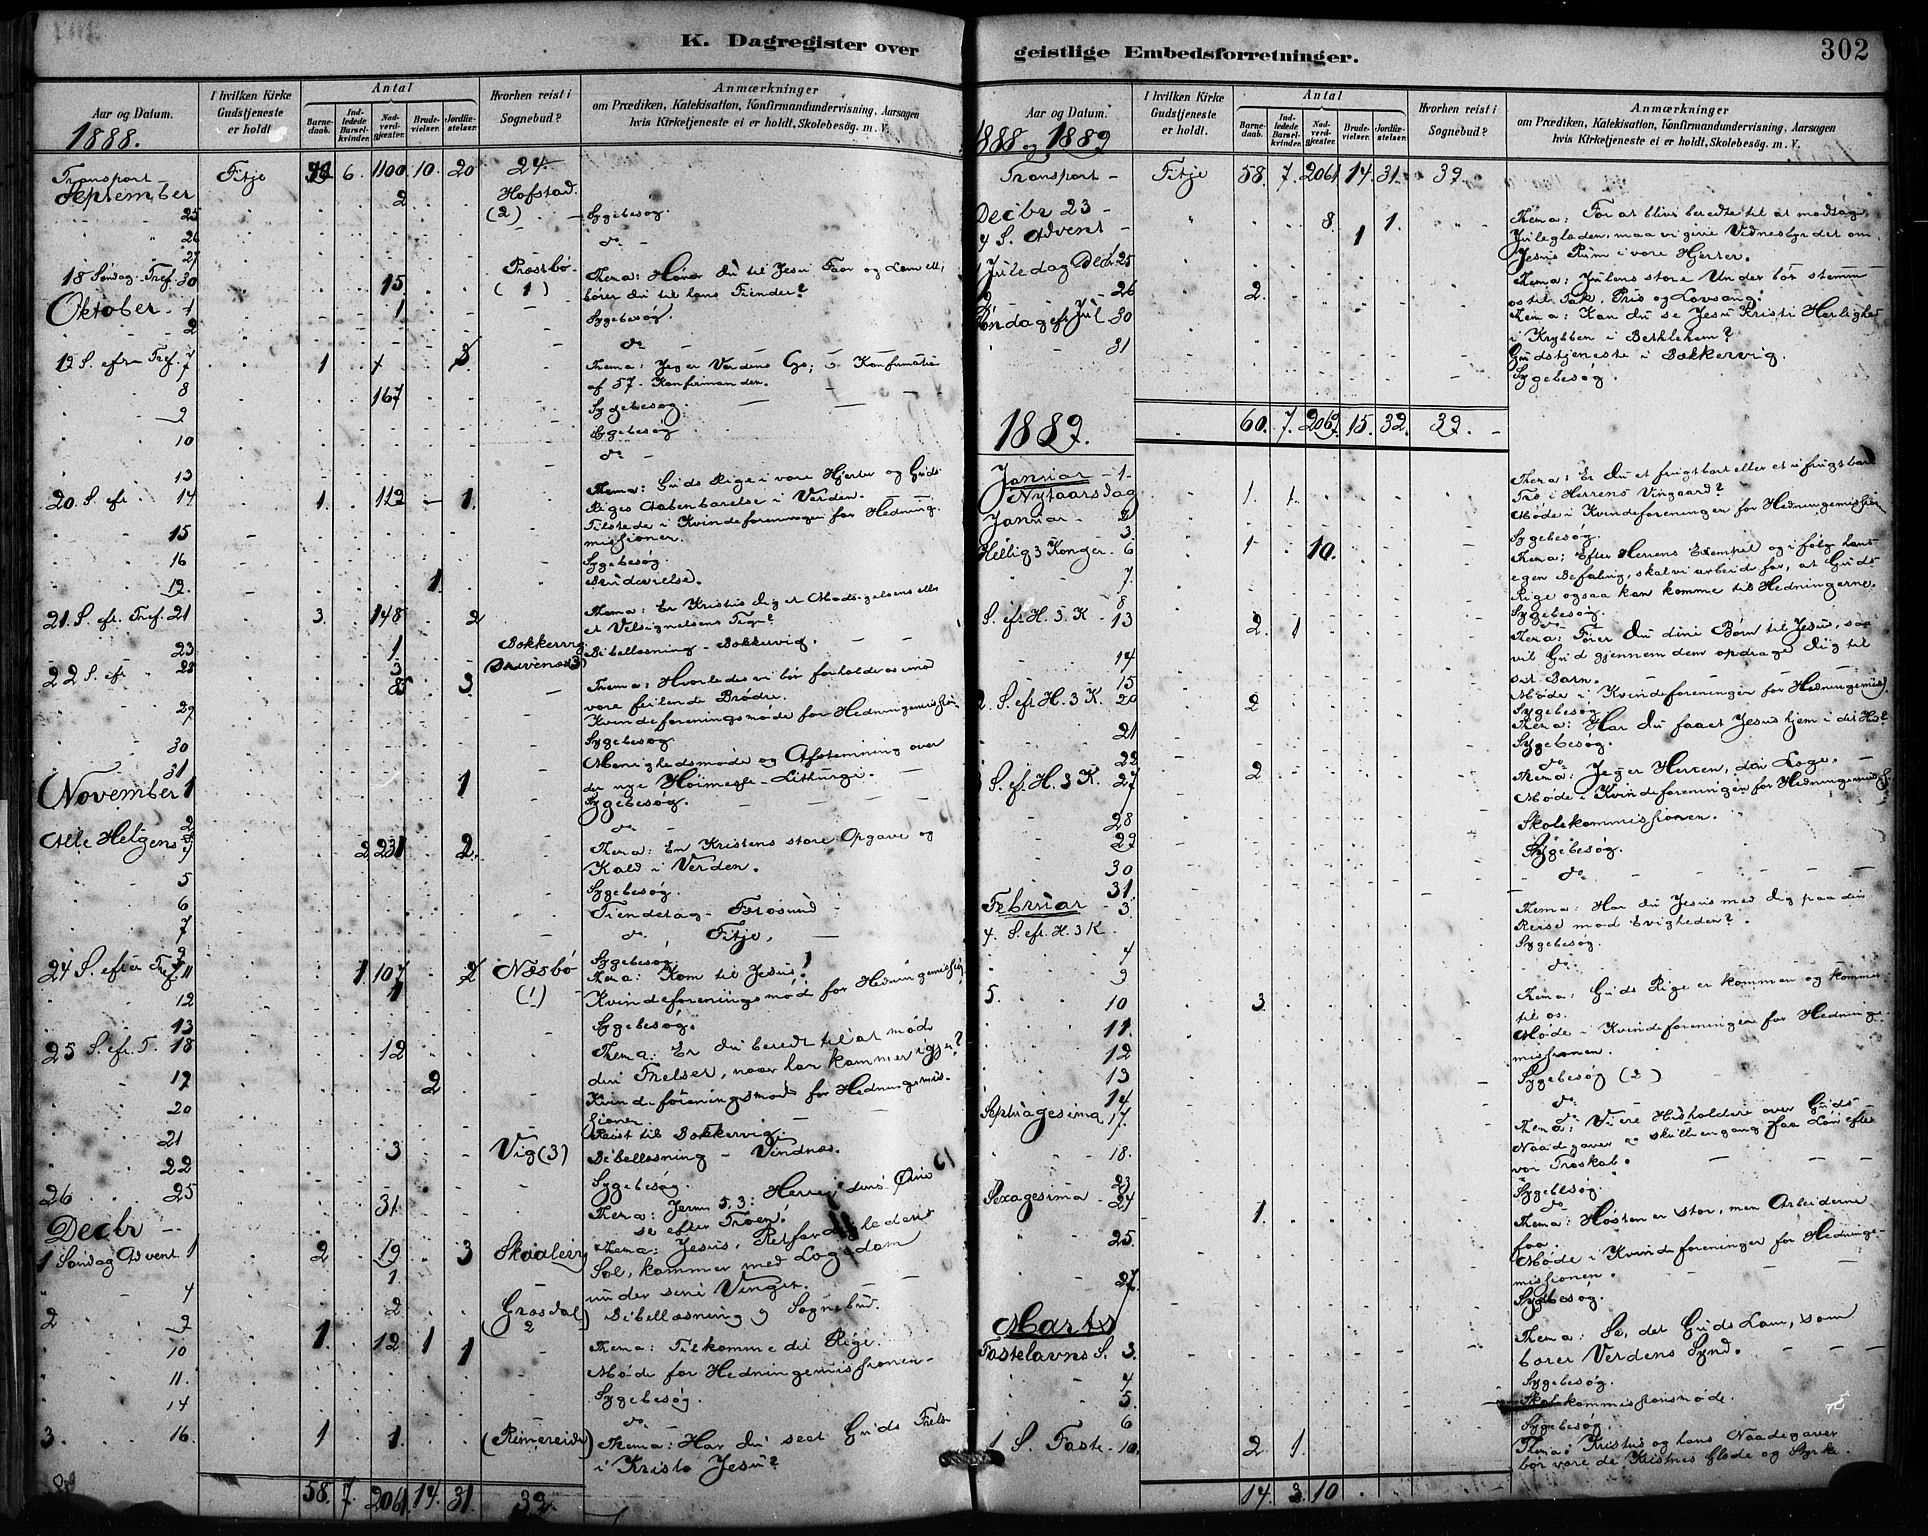 K. Dagregister over
Aar og Datum.
1888.
I hvilken Kirke Gudstjeneste er holdt
Antal
Barnedaab. Indledede Barselkvinder. Nadverdgjester. Brudevielser. Jordfæstelser.
Hvorhen reist i Sognebud?
Anmærkninger
om Prædiken, Katekisation, Konfirmandundervisning, Aarsagen
hvis Kirketjeneste ei er holdt, Skolebesøg. m. V.
Transport Fitje 6. 1100. 10. 20 24
September 2 Hofstad.
25 (2) Sygebesøg.
26 do
27
18 Søndag Tref. 30 15 (1) Thema: Hører Du til Jesu Faar og Lam ell.
hører Du til hans Fiender?
Oktober 1 1 Sygebesøg.
2 do
7 1 3. Thema: Jeg er Verdens Lys; Konfirmation
af 57 Konfirmander.
8 167 Sygebesøg.
9 Sygebesøg
10 do
13 Thema: Guds Rige i vore Hjerter og Guds
20. S. efr 14 1. 112 1. Riges Aabenbarelse i Verden.
15 Tilstede i Kvindeforeningen for Hedningmissionen.
16 Sygebesøg
1. Brudevielse.
21. S. efr. Tref. 21 3. 148 2
23 1 Bokkervig Bibellæsning - Bokkervig.
22 S. efr 28 3 85 3. Thema: Hvorledes vi bør forholde os imod
vore feilende Brødre.
29 Kvindeforeningsmøde for Hedningemission.
30 Sygebesøg
31 Menighedsmøde og Afstemning over
November 1 1 den nye Høimesse-Lithurgi.
Sygebesøg.
2 do
Alle Helgens 2 231 2. Thema: En Kristens store Opgave og
Kald i Verden.
5 Sygebesøg.
6 Tiendetag -
7 do Fitje,
9 Sygebesøg
24 S. efter Tref. 11 1 107 2 Næsbø Thema: Kom til Jesus!
12 1 (1) Kvindeforeningsmøde for Hedningemission
13 Sygebesøg.
25 S. efr. T. 18 12 Thema: Er Du beredt til at møde
din Frelser, naar han kommer igjen?
19 2 Kvindeforeningsmøde for Hedningemissionen.
20 Reist til Bokkervig.
21 3 Vig (3) Bibellæsning - Vindnæs.
22 Sygebesøg.
26 25 31. Thema: Jerm. 5.3: Herre, dine Øine
se efter Troen!
Decbr
1 Søndag Advent 1 2 19 3 Thema: Jesus, Retfærdighedens
1. Sol, kommer med Lægedom
under sine Vinger.
4 2 Bibellæsning og Sognebud.
2 9 1. 12 1 1 Thema: Tilkomme dit Rige.
10 Møde for Hedningemissionen
11. Sygebesøg.
14 do
3. 16. 1 1. (Rimereide) Thema: Har Du seet Guds Frelse
i Kristo Jesu?
58. 7. 2061. 14. 31. 39.
geistlige Embedsforretninger.
302
Aar og Datum.
1888 og 1889
I hvilken Kirke Gudstjeneste er holdt.
Antal
Barnedaab. Indledede Barselkvinder. Nadverdgjester. Brudevielser. Jordfæstelser.
Hvorhen reist i Sognebud?
Anmærkninger
om Prædiken, Katekisation, Konfirmandundervisning, Aarsagen
hvis Kirketjeneste ei er holdt, Skolebesøg. m. V.
Transport Fitje 58. 7. 2061 14. 31. 39.
Decbr 23 8. 1. Thema: For at blive beredte til at modtage
4 S. Advent 1 Juleglæden, maa vi give Vidnesbyrdet om
Jesus Rum i vore Hjerter.
1 Juledag Decbr 25 Thema: Julens store Under bør stemme
2 26 2. os til Tak, Pris og Lovsang.
Søndag efr Jul 30 Thema: Kan Du se Jesu Kristi Herlighed
i Krybben i Bethlehem?
31 Gudstjeneste i Bokkervig.
Sygebesøg.
60. 7. 2069. 15. 32. 39.
1889.
Januar 1. Thema: Er Du et frugtbart eller et ufrugtbart
Nytaarsdag 1. 1. Træ i Herrens Vingaard?
Januar 2 Møde i Kvindeforeningen for Hedningemission
3. Sygebesøg.
Hellig 3 Konger 6 1 10. Thema: Efter Herrens Exempel og ifølge hans
egen Befaling, skal vi arbeide for, at Guds
7. Rige ogsaa kan komme til Hedningerne.
8 Sygebesøg.
do
S. efr H. 3 K 13 2 1 Thema: Fører Du dine Børn til Jesus, saa
vil Gud gjennem dem opdrage Dig til
sit Barn.
14 Møde i Kvindeforeningen for Hedningemis.
15 Sygebesøg
2. S. efr H. 3 K. 20 2 Thema: Har Du faaet Jesus hjem i dit Hus?
21 Sygebesøg.
22 do
3 S. ef. H. 3 K. 27 2 Thema: Jeg er Herren, din Læge.
28 Møde i Kvindeforeningen for Hedningemis.
29 Skolekommissionen.
30 Sygebesøg.
31. do
Februar 3 Thema: Har Du Jesus med Dig paa din
4. S. efr. H. 3 K Reise mod Evigheden?
4 Sygebesøg.
9 do
5. 10 3. Thema: Guds Rige er kommen og kommer
til os.
11. Møde i Kvindeforeningen for Hedningemissionen.
12 Sygebesøg (2)
13 do
14 do
Septuagesima 17. Thema: Vi ere Husholdere over Guds
Naadegaver og skulle engang faa Løn efter
vor Troskab.
18. Sygebesøg.
23 do
Sexagesima 24 1. Thema: Høsten er stor, men Arbeiderne
faa.
25. Møde i Kvindeforeninger for Hedningemissionen.
27. Sygebesøg.
Marts
Fastelavns S. 3. Thema: Se, det Guds Lam, som
bærer Verdens Synd.
4 Sygebesøg.
5. Skolekommissionsmøde.
6 Sygebesøg
1 S. Faste 10. 2 1. Thema: Kristus og hans Naadegaver
bør være de Kristnes Glæde og Styrke.
14. 3. 10